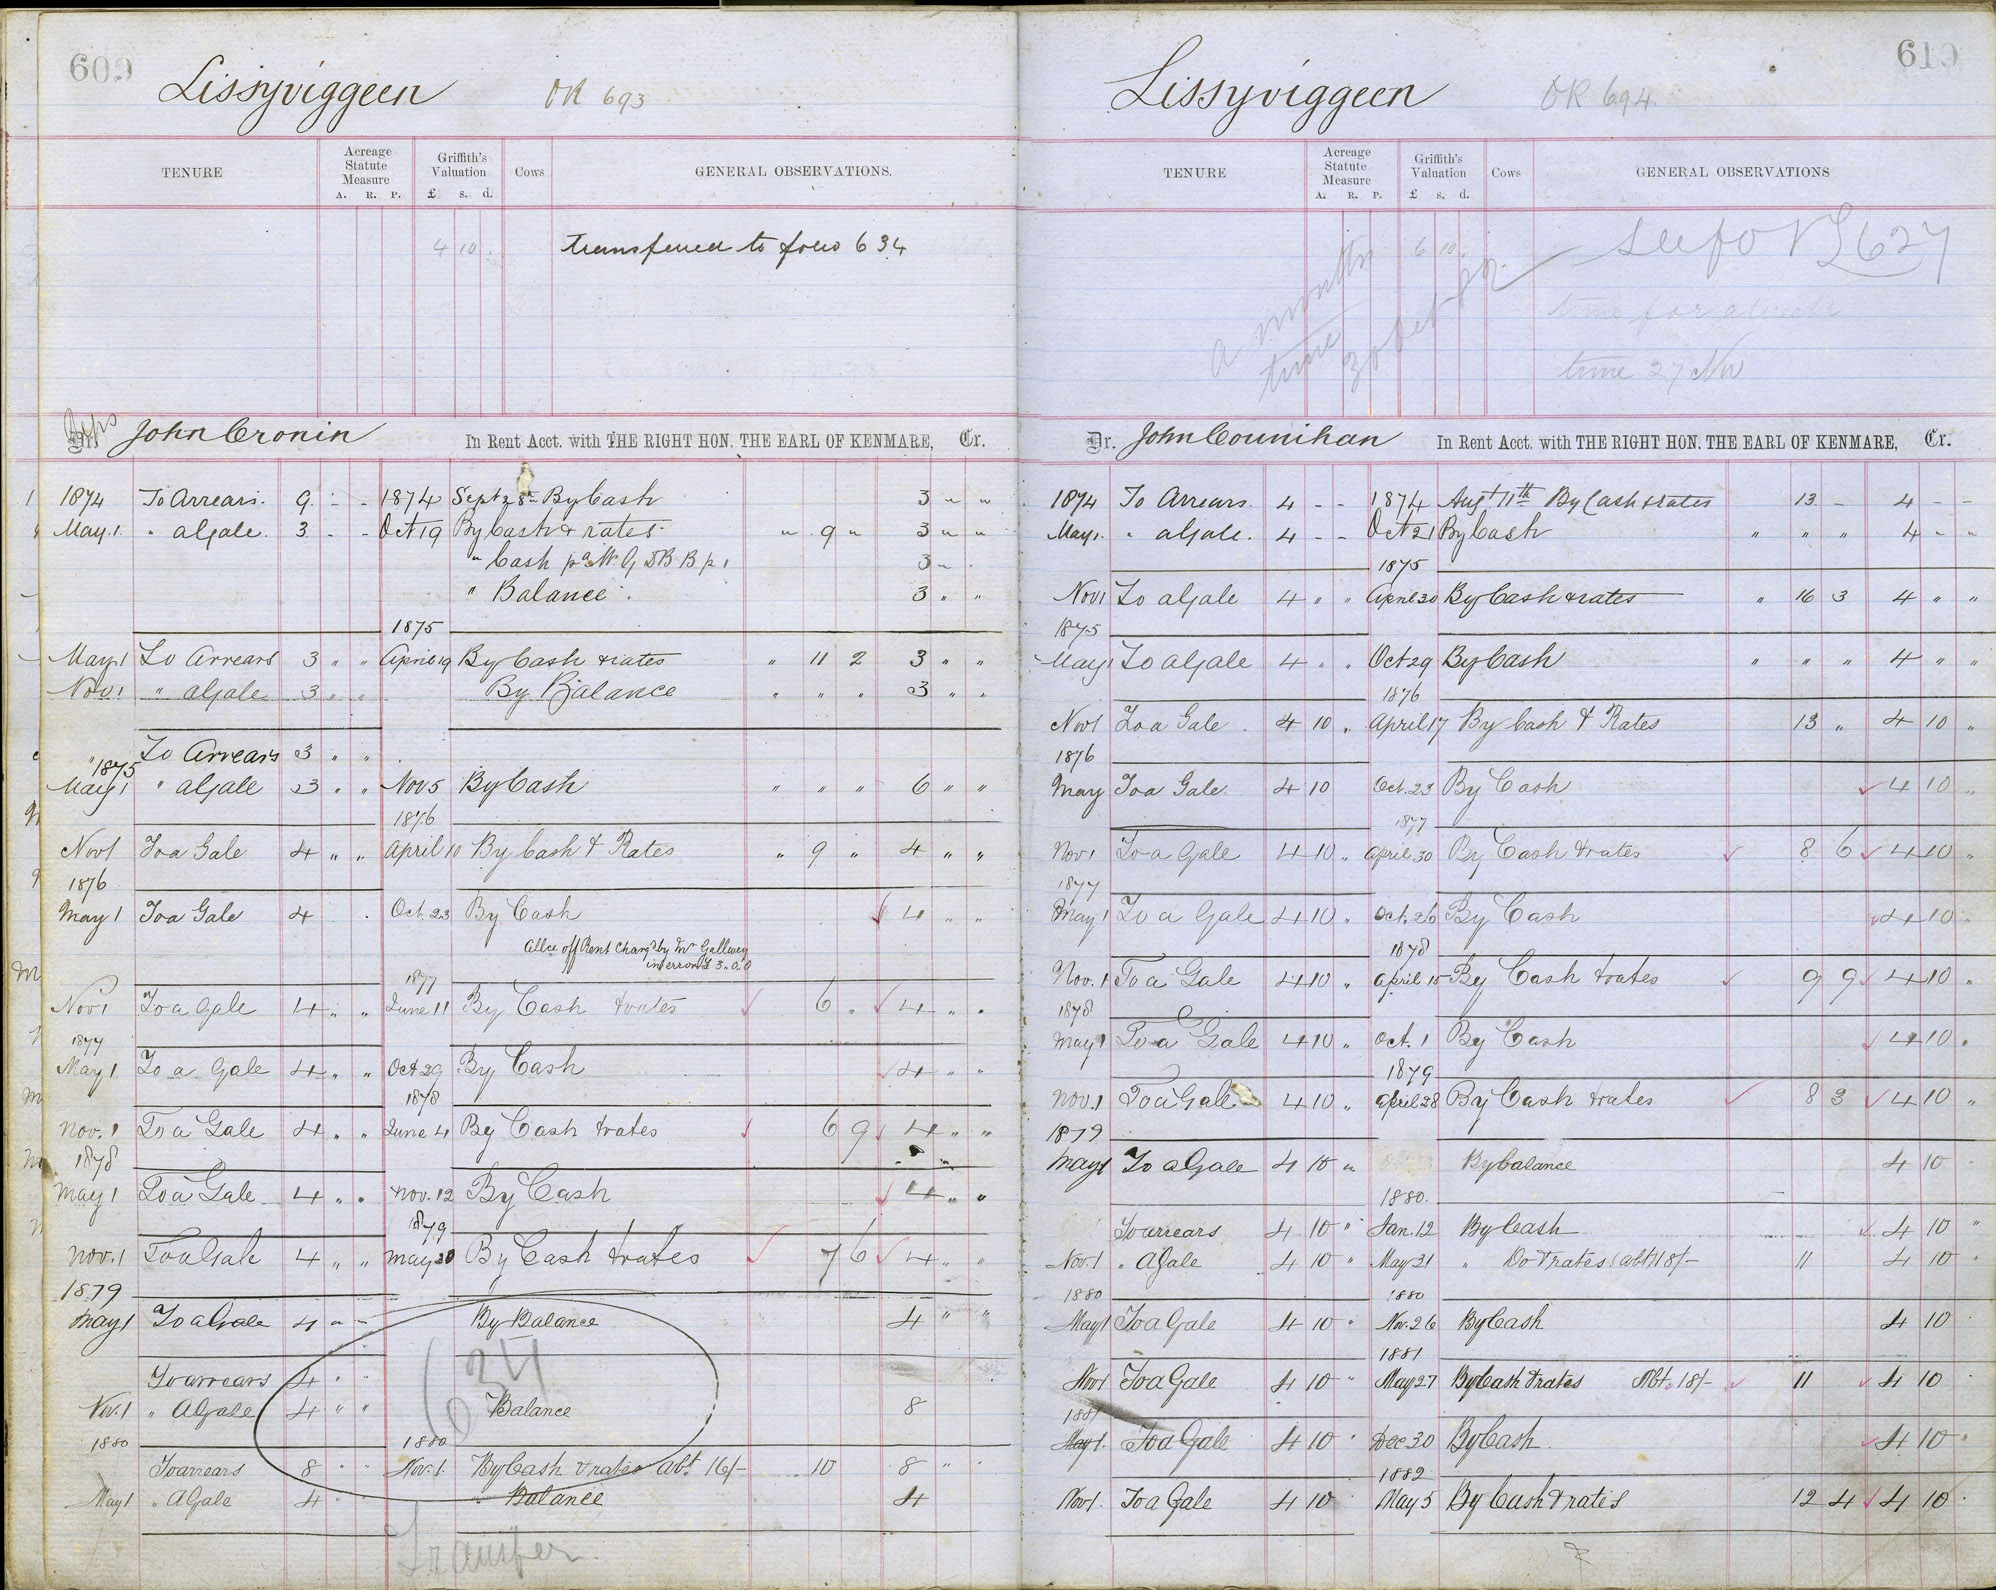 609
Lissyviggeen OR 693
TENURE Acreage Statute Measure A. R. P. Griffith's Valuation £ s. d. Cows GENERAL OBSERVATIONS.
4 10 transferred to folio 634
Reps
Dr. John Cronin In Rent Acct. with THE RIGHT HON. THE EARL OF KENMARE, Cr.
1874 To Arrears. 9 - - 1874 Sept 28th By Cash 3 " "
May 1. " a Gale. 3 - - Oct 19 By Cash & rates " 9 " 3 " "
" Cash pd Mr G DB B p 1 3 "
" Balance 3 " "
1875
May 1 To Arrears 3 " " April 19 By Cash & rates " 11 2 3 " "
Nov 1 " a Gale 3 " " By Balance " " " 3 " "
" To Arrears 3 " "
1875
May 1 " a Gale 3 " " Nov 5 By Cash " " " 6 " "
1876
Nov 1 To a Gale 4 " " April 10 By Cash & Rates " 9 " 4 " "
1876
May 1 To a Gale 4 Oct. 23 By Cash 4 " "
Allce off Rent Charged by Mr Gallwey
in error £ 3.0.0
1877
Nov 1 To a Gale 4 " " June 11 By Cash & rates 6 " 4 " "
1877
May 1 To a Gale 4 " " Oct 29 By Cash 4 " "
1878
Nov. 1 To a Gale 4 " " June 4 By Cash & rates 6 9 4 " "
1878
May 1 To a Gale 4 " " Nov. 12 By Cash 4 " "
1879
Nov. 1 To a Gale 4 " " May 30 By Cash & rates 7 6 4 " "
1879
May 1 To a Gale 4 " - By Balance 4 " "
634
To arrears 4 " "
Nov. 1 " A Gale 4 " " Balance 8
1880 1880
To arrears 8 " " Nov. 1. By Cash & rates abt. 16/- 10 8 " "
May 1 " A Gale 4 " " " Balance 4
Transfer
610
Lissyviggeen OR 694.
TENURE Acreage Statute Measure A. R. P. Griffith's Valuation £ s. d. Cows GENERAL OBSERVATIONS
6 10 See fo 627
a months
time
30 Oct 82
time for
time 27 Nov
Dr. John Counihan In Rent Acct. with THE RIGHT HON. THE EARL OF KENMARE, Cr.
1874 To Arrears. 4 - - 1874 Augt 11th By Cash & rates 13 - 4 - -
May 1. " a Gale. 4 - - Oct 21 By Cash " " " 4 - "
1875
Nov 1 To a Gale 4 " " April 30 By Cash & rates " 16 3 4 " "
1875
May 1 To a Gale 4 " " Oct 29 By Cash " " " 4 " "
1876
Nov 1 To a Gale 4 10 " April 17 By Cash & Rates 13 " 4 10 "
1876
May To a Gale 4 10 Oct. 23 By Cash 4 10 "
1877
Nov 1 To a Gale 4 10 " April 30 By Cash & rates 8 6 4 10 "
1877
May 1 To a Gale 4 10 " Oct. 26 By Cash 4 10 "
1878
Nov. 1 To a Gale 4 10 " April 15 By Cash & rates 9 9 4 10 "
1878
May 1 To a Gale 4 10 " Oct. 1 By Cash 4 10 "
1879
Nov. 1 To a Gale 4 10 " April 28 By Cash & rates 8 3 4 10 "
1879
May 1 To a Gale 4 10 " By balance 4 10
1880.
To arrears 4 10 " Jan. 12 By Cash 4 10 "
Nov. 1 " A Gale 4 10 " May 31 " Do & rates (abt) 18/- 11 4 10 "
1880 1880
May 1 To a Gale 4 10 " Nov. 26 By Cash 4 10
1881
Nov 1 To a Gale 4 10 " May 27 By Cash & rates Abt. 18/- 11 4 10
1881
May 1. To a Gale 4 10 " Dec 30 By Cash. 4 10 "
1882
Nov 1. To a Gale 4 10 May 5 By Cash & rates 12 4 4 10